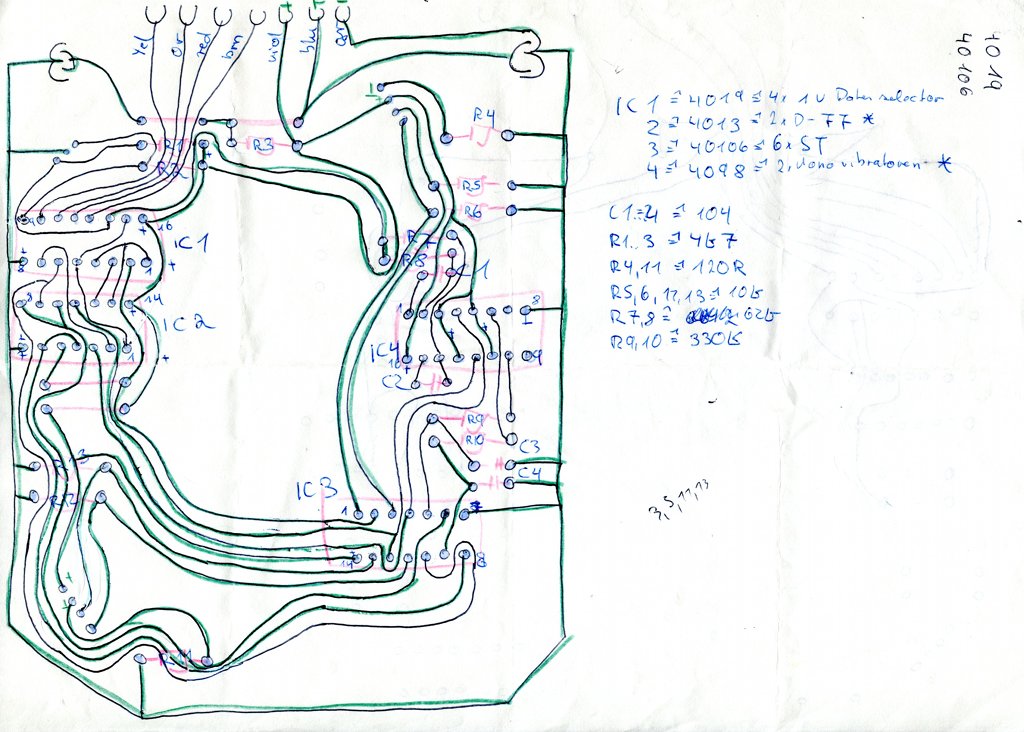 Yel
or
red
brn
viol
blu
grn
+
+
-
R1
R2
R3
R4
R5
R6
R7
R8
C1
16
IC1
8
1
8
14
IC2
1
1
8
IC4
16
9
C2
R9
R10
C3
C4
R13
R12
IC3
1
14
8
R11
4019
40106
IC1 = 4019 = 4x 1u Daten selector
2 = 4013 = 2xD-FF *
3 = 40106 = 6xST
4 = 4098 = 2x Monovibratoren *
C1-4 = 104
R1..3 = 4k7
R4,11 = 120R
R5,6,12,13 = 10k
R7,8 = 62k
R9,10 = 330k
3,5,11,13